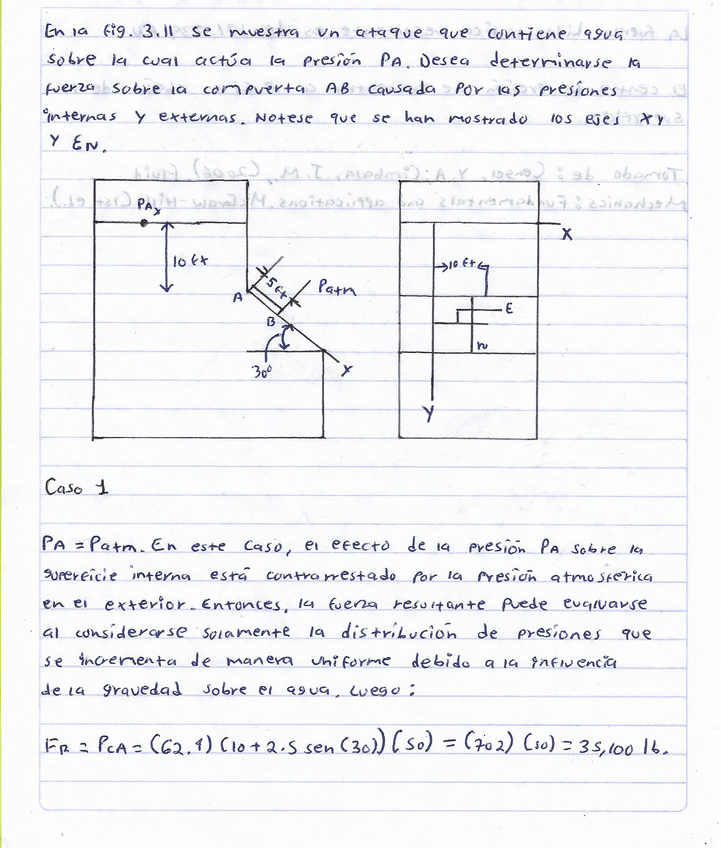 En la fig. 3.11 se muestra un ataque que contiene agua
sobre la cual actúa la presión PA. Desea determinarse la
fuerza sobre la compuerta AB causada por las presiones
internas y externas. Notese que se han mostrado los ejes XY
Y EN.
PA
10 ft
A
5 ft
Patm
B
30°
Y
X
10 ft
E
n
Y
Caso 1
PA = Patm. En este caso, el efecto de la presión PA sobre la
superficie interna está contrarrestado por la presión atmosferica
en el exterior. Entonces, la fuerza resultante puede evaluarse
al considerarse solamente la distribución de presiones que
se incrementa de manera uniforme debido a la influencia
de la gravedad sobre el agua. Luego:
FR = PCA = (62.4) (10 + 2.5 sen (30)) (50) = (702) (50) = 35,100 lb.